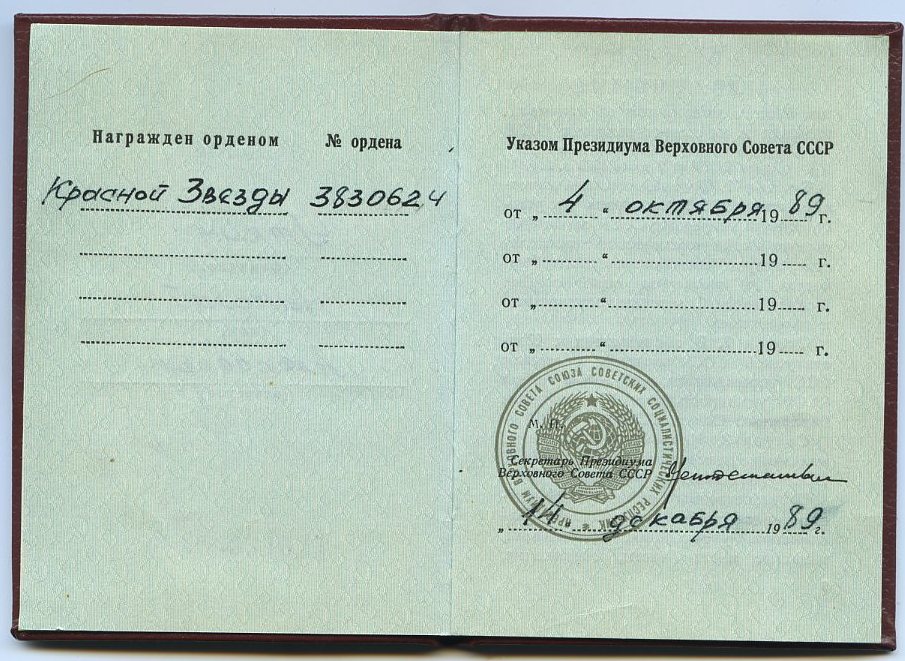 Награжден орденом № ордена
Красной Звезды 3830624
Указом Президиума Верховного Совета СССР
от „ 4 “ октября 1989 г.
от „ “ 19 г.
от „ “ 19 г.
от „ “ 19 г.
ПРЕЗИДИУМ ВЕРХОВНОГО СОВЕТА СОЮЗА СОВЕТСКИХ СОЦИАЛИСТИЧЕСКИХ РЕСПУБЛИК
М. П.
Секретарь Президиума
Верховного Совета СССР
„ 14 “ декабря 1989 г.